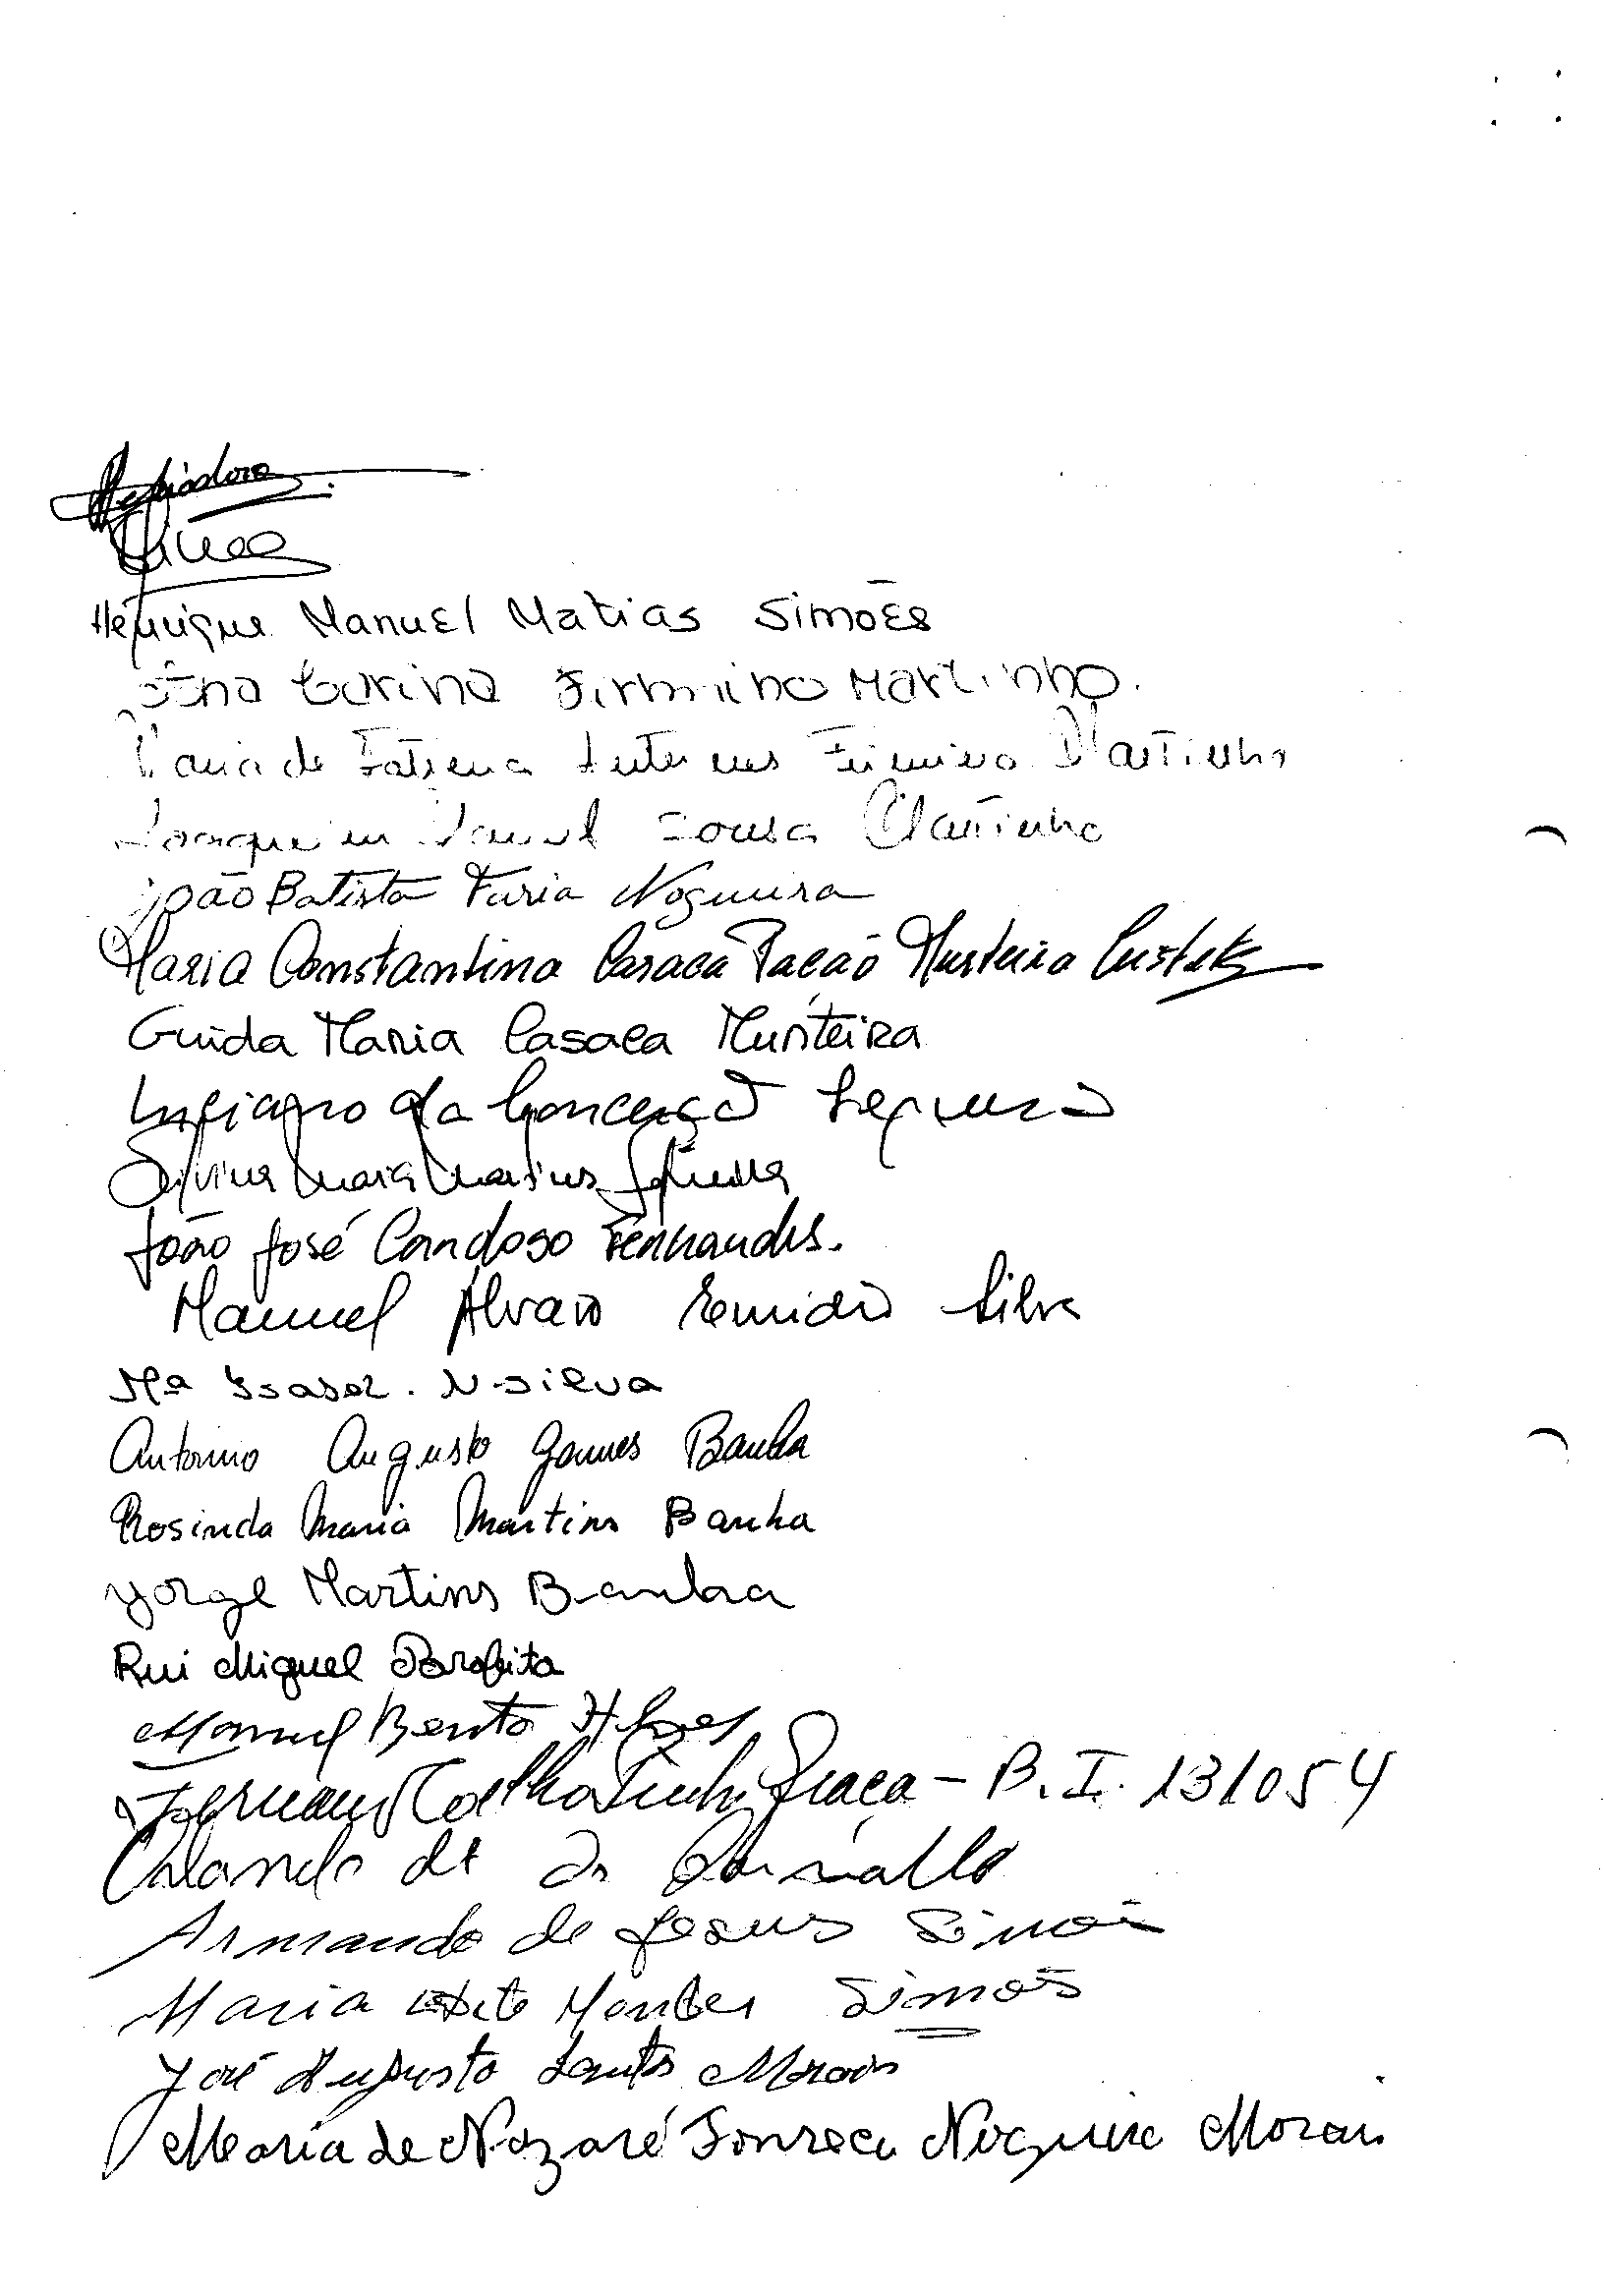 Henrique Manuel Matias Simões
Carina Firmino Martinho.
Maria de Fatima Antunes Firmino Martinho
Joaquim Manuel Sousa Martinho
João Batista Faria Nogueira
Maria Constantina Casaca Murteira
Guida Maria Casaca Murteira
Luciano da Conceição
Silvina Maria Martins
João José Cardoso Fernandes.
Manuel Álvaro Emidio Silva
Mª Isabel. N. Silva
Antonio Augusto Gomes Banha
Rosinda Maria Martins Banha
Jorge Martins Banha
Rui Miguel Barafita
Manuel Bento
Coelho Graça - B.I. 131054
Orlando de
Armando de Jesus Simões
Maria Simões
José Augusto Santos Morais
Maria de Nazaré Fonseca Nogueira Morais